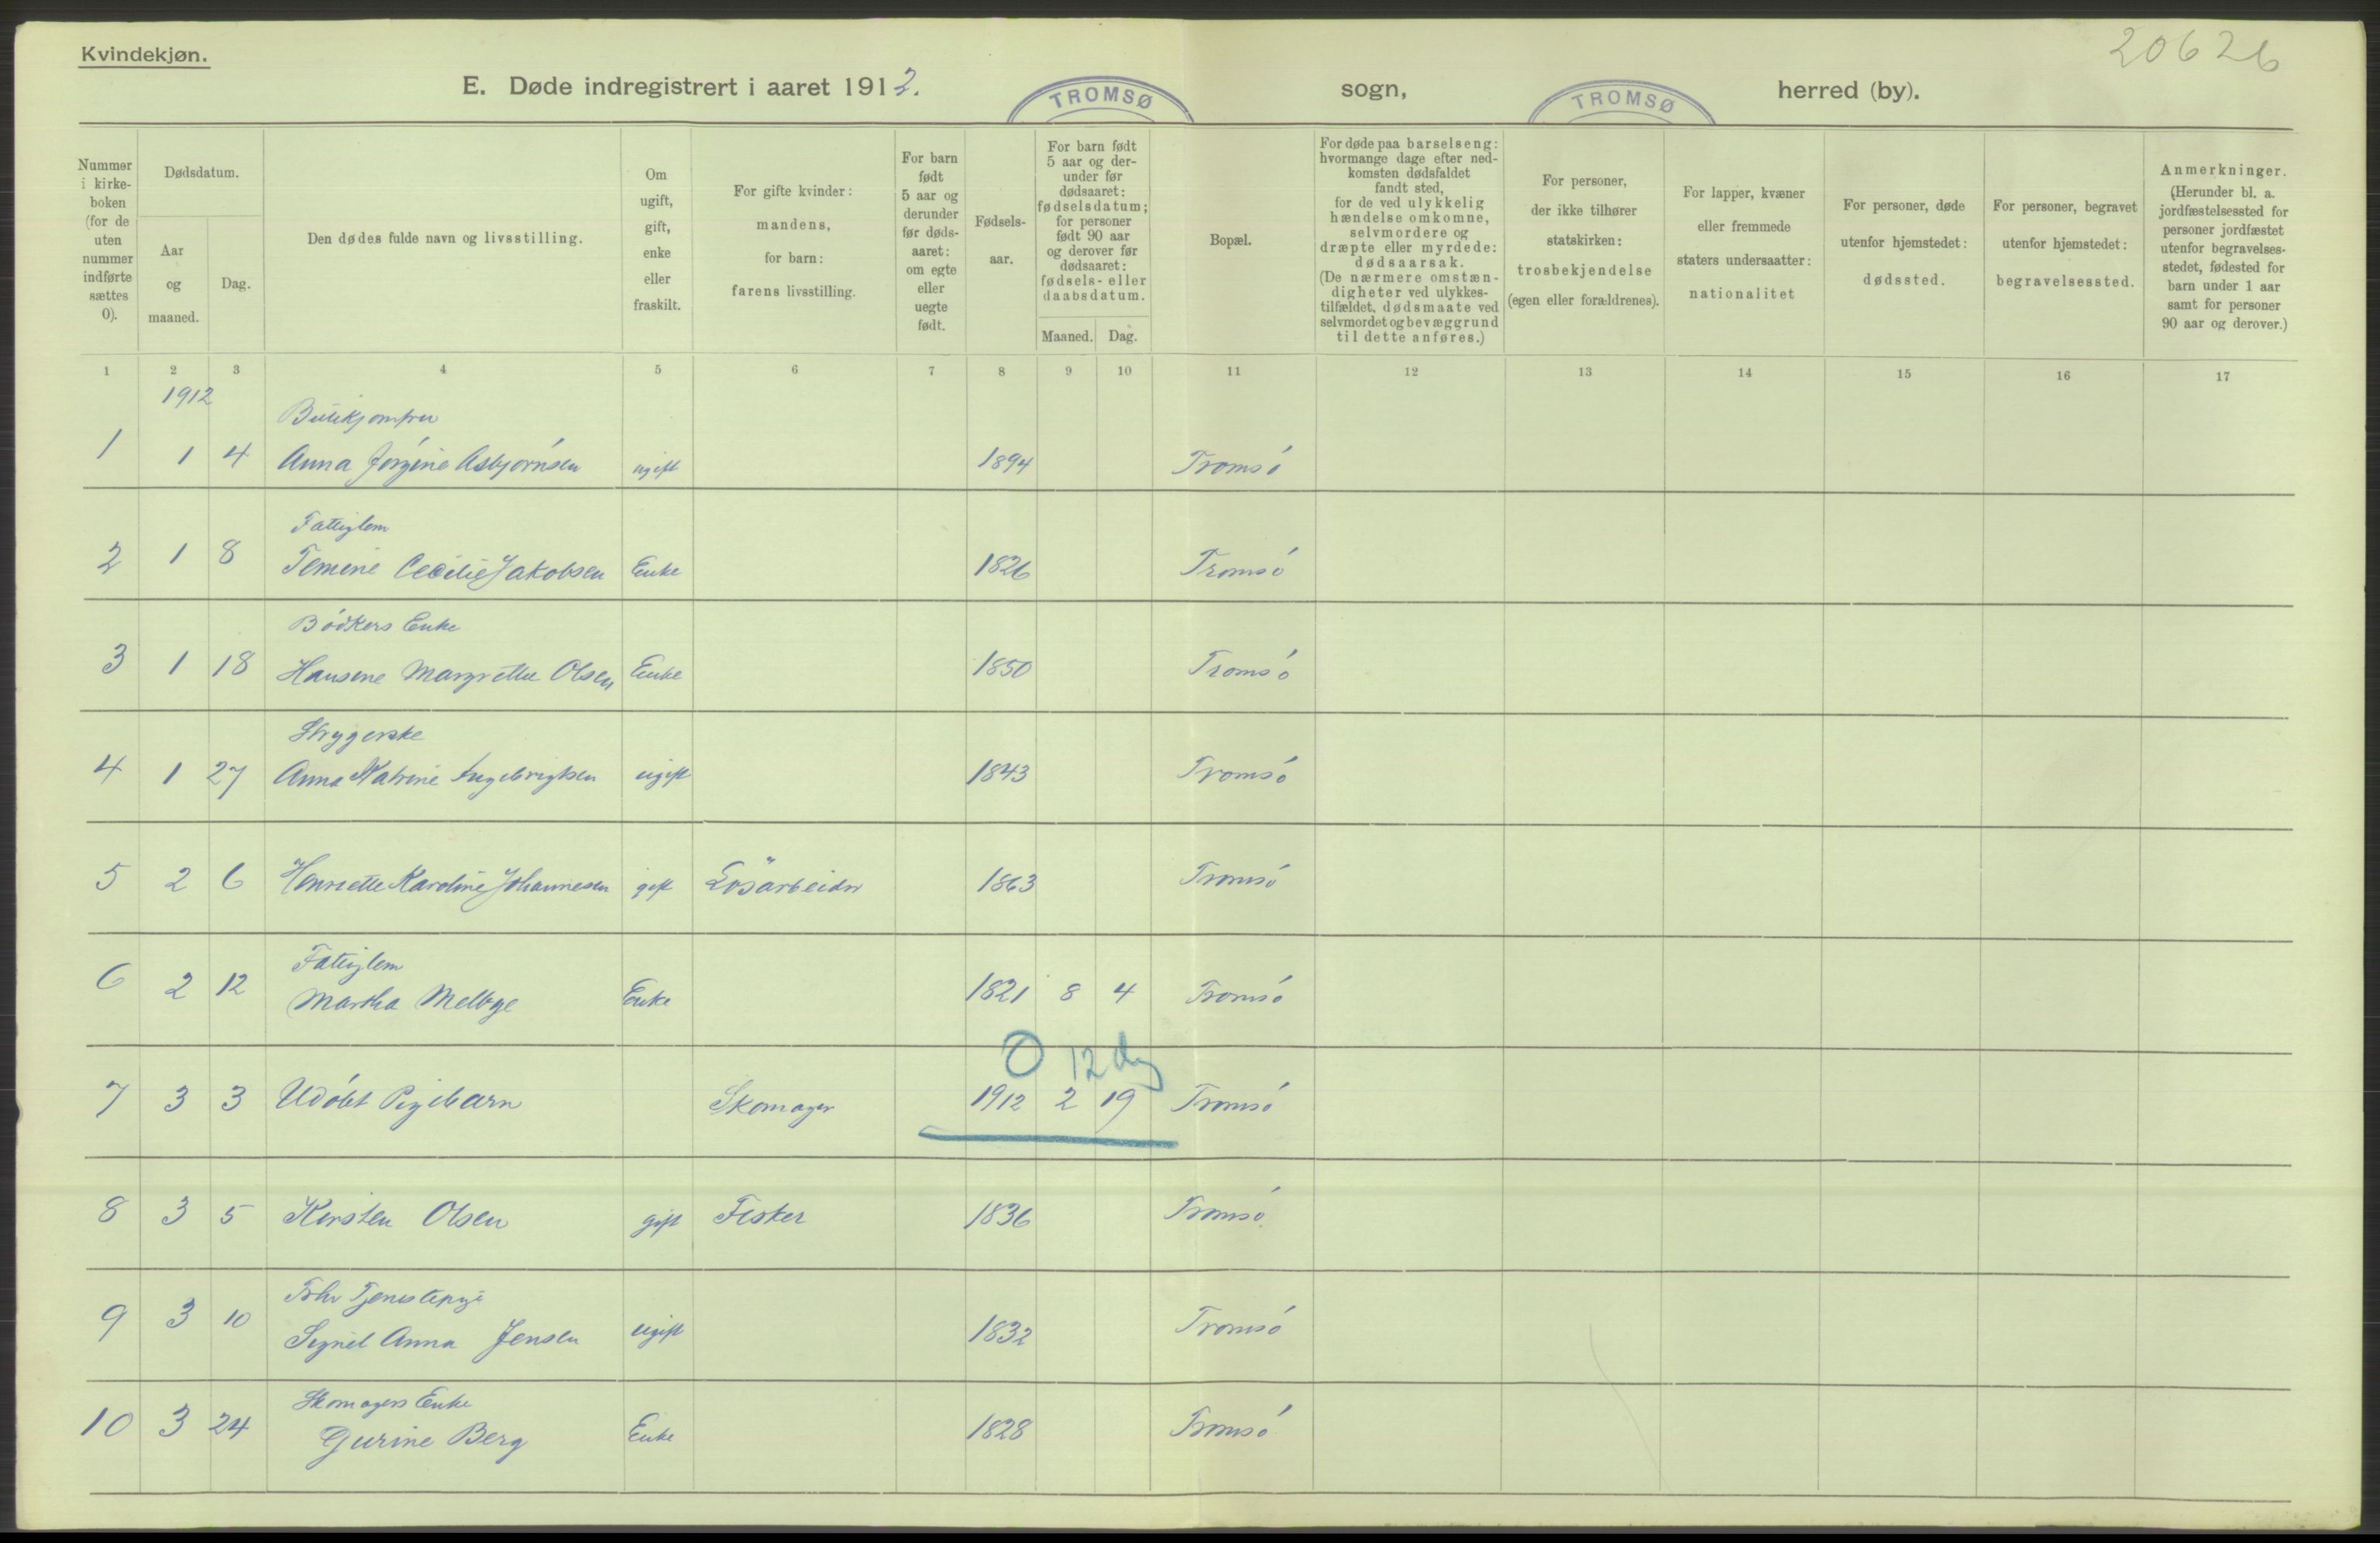 Kvindekjøn.
20626
E. Døde indregistrert i aaret 1912. TROMSØ sogn, TROMSØ herred (by).
Nummer i kirke-boken (for de uten nummer indførte sættes 0).
Dødsdatum.
Aar og maaned.
Dag.
Den dødes fulde navn og livsstilling.
Om ugift, gift, enke eller fraskilt.
For gifte kvinder: mandens, for barn: farens livsstilling.
For barn født 5 aar og derunder før døds-aaret: om egte eller uegte født.
Fødsels-aar.
For barn født 5 aar og der-under før dødsaaret: fødselsdatum; for personer født 90 aar og derover før dødsaaret: fødsels- eller daabsdatum.
Maaned. Dag.
Bopæl.
For døde paa barselseng: hvormange dage efter ned-komsten dødsfaldet fandt sted, for de ved ulykkelig hændelse omkomne, selvmordere og dræpte eller myrdede: dødsaarsak. (De nærmere omstæn-digheter ved ulykkes-tilfældet, dødsmaate ved selvmordet og bevæggrund til dette anføres.)
For personer, der ikke tilhører statskirken: trosbekjendelse (egen eller forældrenes).
For lapper, kvæner eller fremmede staters undersaatter: nationalitet
For personer, døde utenfor hjemstedet: dødssted.
For personer, begravet utenfor hjemstedet: begravelsessted.
Anmerkninger. (Herunder bl. a. jordfæstelsessted for personer jordfæstet utenfor begravelses-stedet, fødested for barn under 1 aar samt for personer 90 aar og derover.)
1 2 3 4 5 6 7 8 9 10 11 12 13 14 15 16 17
1912
Butikjomfru
1 1 4 Anna Jørgine Asbjørnsen ugift 1894 Tromsø
Fattiglem
2 1 8 Temine Cecilie Jakobsen Enke 1826 Tromsø
Bødkers Enke
3 1 18 Hansine Margrethe Olsen Enke 1850 Tromsø
Strygerske
4 1 27 Anna Katrine Ingebrigtsen ugift 1843 Tromsø
5 2 6 Henriette Karoline Johannesen gift Løsarbeider 1863 Tromsø
Fattiglem
6 2 12 Martha Melbye Enke 1821 8 4 Tromsø
0 12 dg
7 3 3 Udøbt Pigebarn Skomager 1912 2 19 Tromsø
8 3 5 Kirsten Olsen gift Fisker 1836 Tromsø
Fhv Tjenestepige
9 3 10 Signel Anna Jensen ugift 1832 Tromsø
Skomagers Enke
10 3 24 Gurine Berg Enke 1828 Tromsø